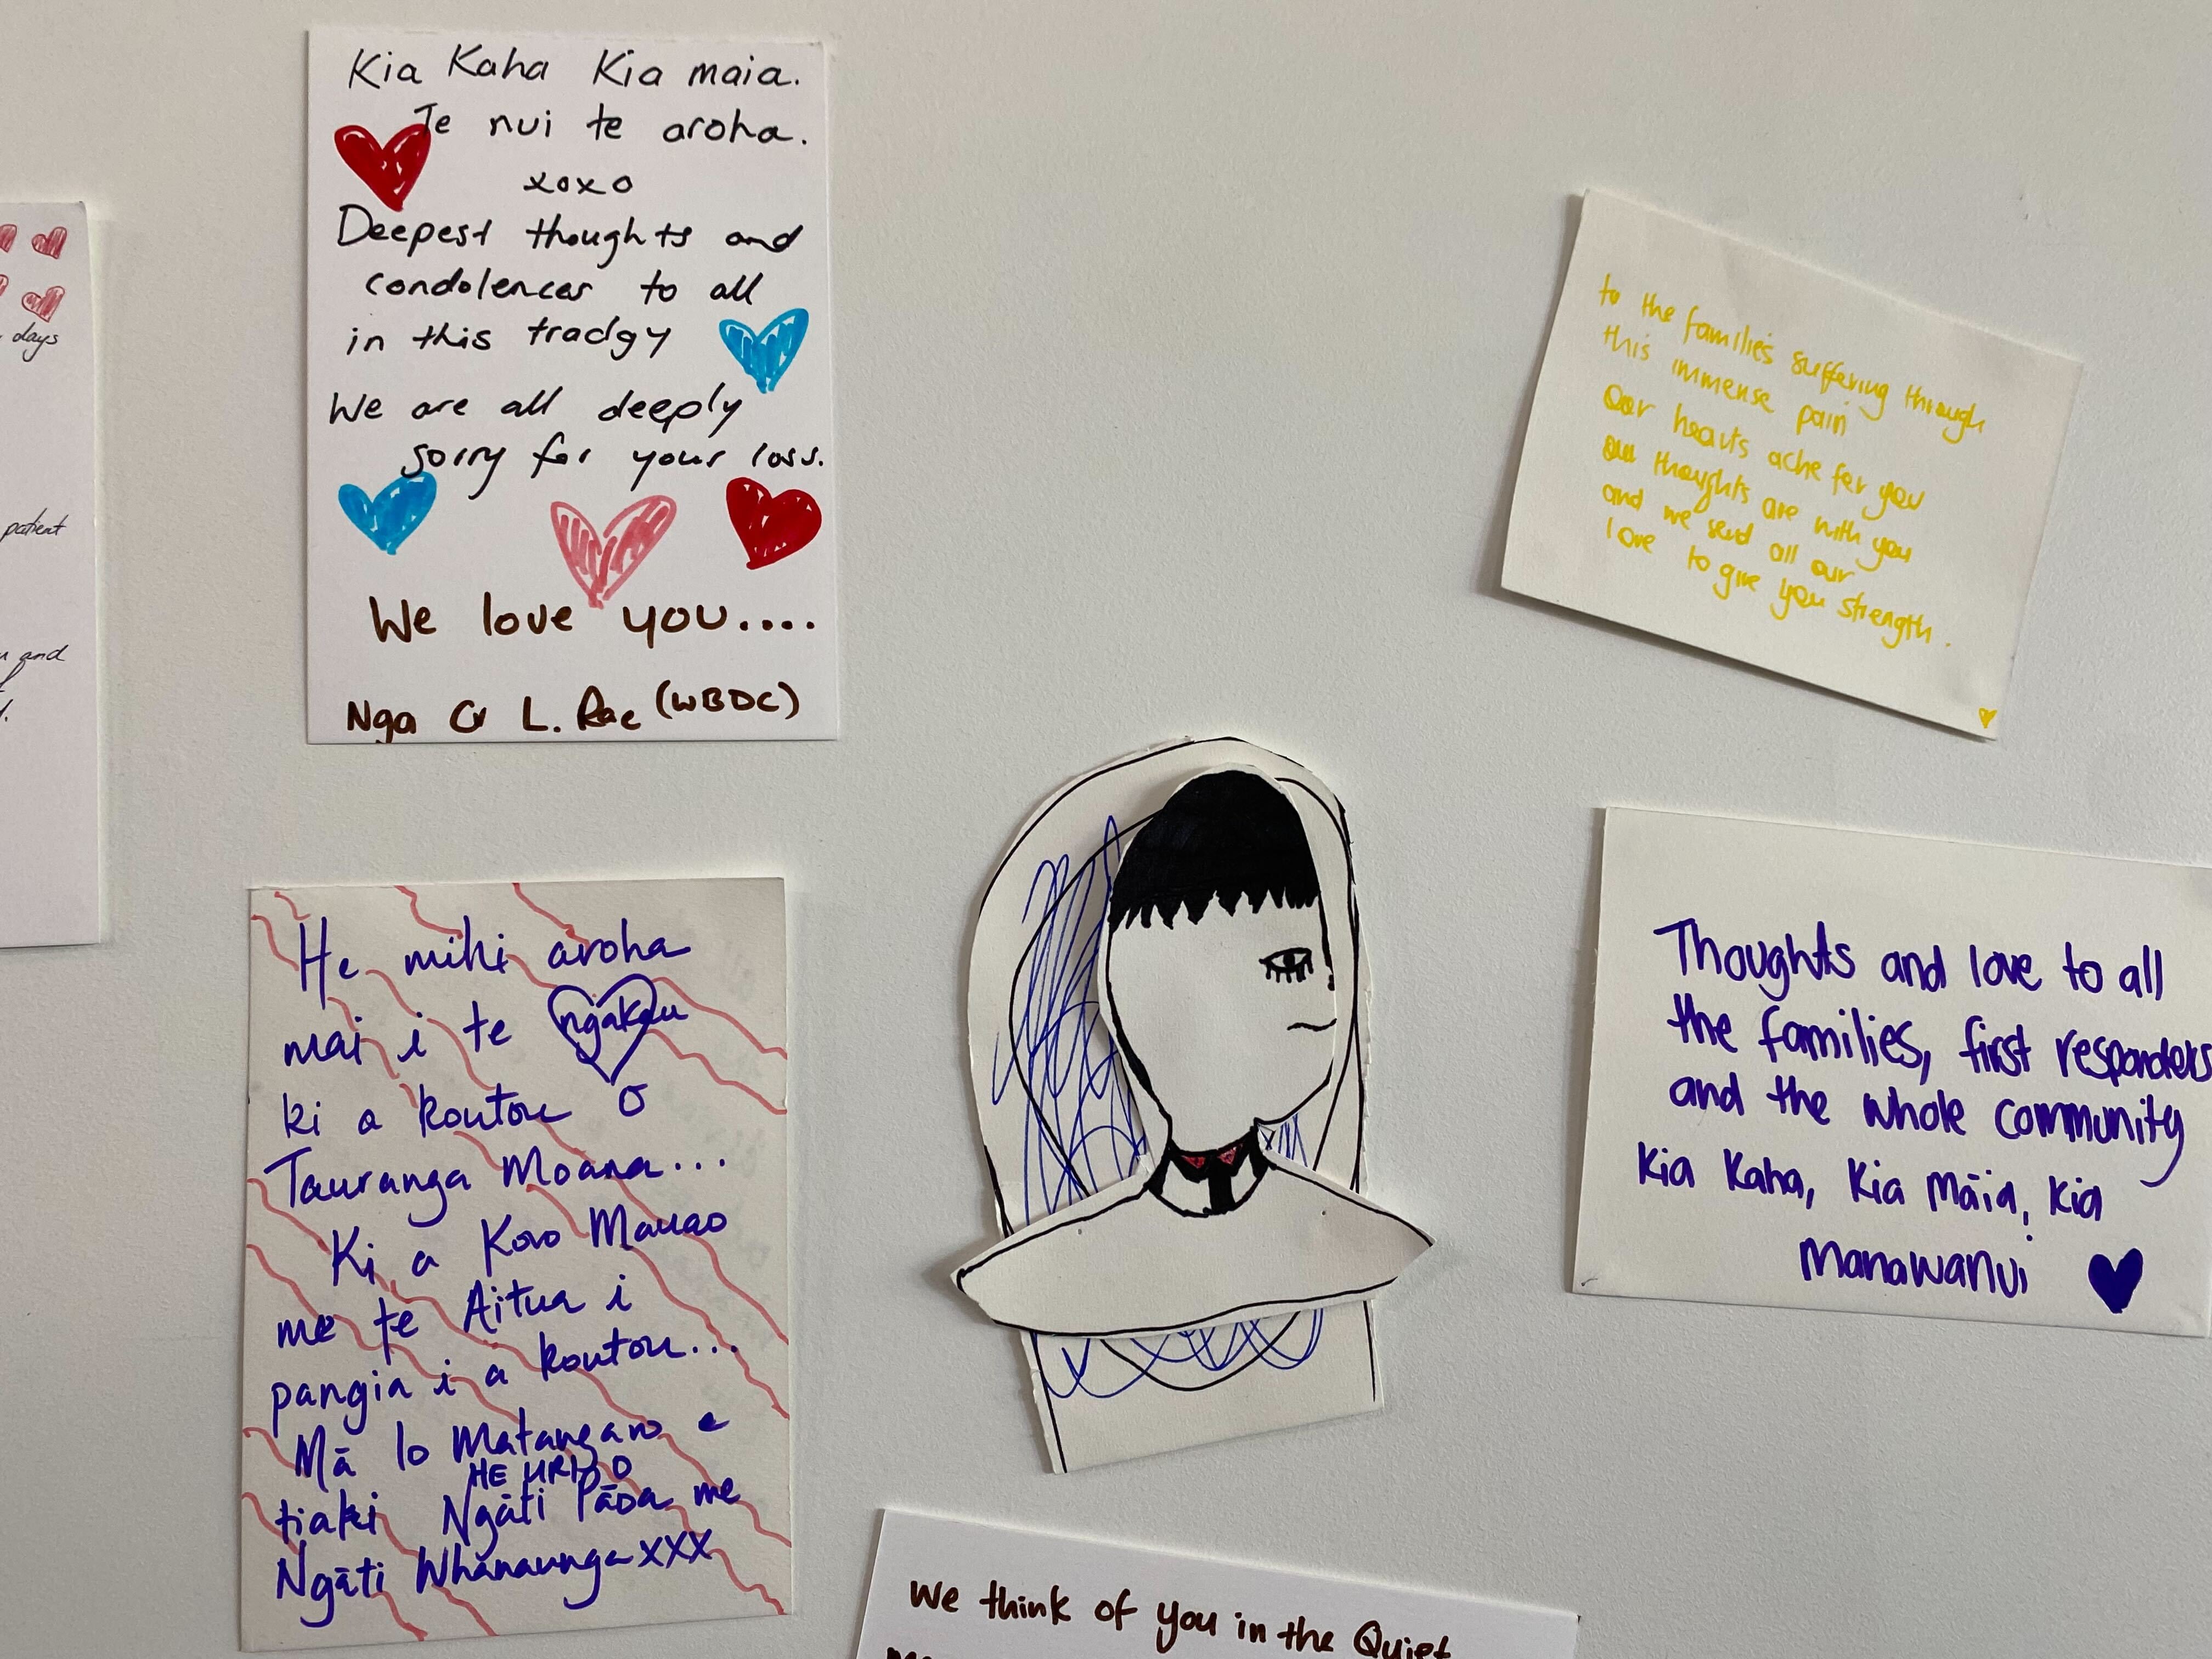 days
patient
and
Kia Kaha Kia maia.
Te nui te aroha.
xoxo
Deepest thoughts and
condolences to all
in this tradgy
We are all deeply
sorry for your loss.
We love you....
Nga Cr L. Rae (WBDC)
to the families suffering through
this immense pain
Our hearts ache for you
our thoughts are with you
and we send all our
love to give you strength.
He mihi aroha
mai i te ngakau
ki a koutou o
Tauranga Moana...
Ki a Koro Mauao
me te Aitua i
pangia i a koutou...
Mā Io Matangaro e
tiaki HE URI O
Ngāti Pāoa me
Ngāti Whanaunga xxx
Thoughts and love to all
the families, first responders
and the whole community
Kia Kaha, Kia Māia, Kia
Manawanui
We think of you in the Quiet